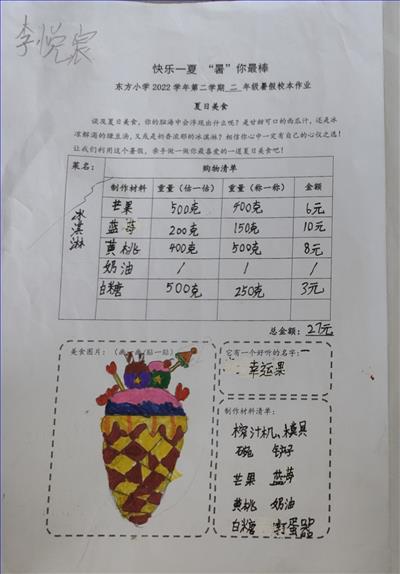 李悦宸
快乐一夏 “暑”你最棒
东方小学2022学年第二学期二年级暑假校本作业
夏日美食
谈及夏日美食，你的脑海中会浮现出什么呢？是甘甜可口的西瓜汁，还是冰
凉解渴的绿豆汤，又或是奶香浓郁的冰淇淋？相信你心中一定有自己的心仪之选！
让我们利用这个暑假，亲手做一做你最喜爱的一道夏日美食吧！
菜名： 购物清单
冰淇淋
制作材料 重量（估一估） 重量（称一称） 金额
芒果 500克 400克 6元
蓝莓 200克 150克 10元
黄桃 400克 500克 8元
奶油 / / /
白糖 500克 250克 3元
总金额：27元
美食图片：（画一画/贴一贴）
它有一个好听的名字：
幸运果
制作材料清单：
榨汁机、模具
碗 铲子
芒果 蓝莓
黄桃 奶油
白糖 打蛋器